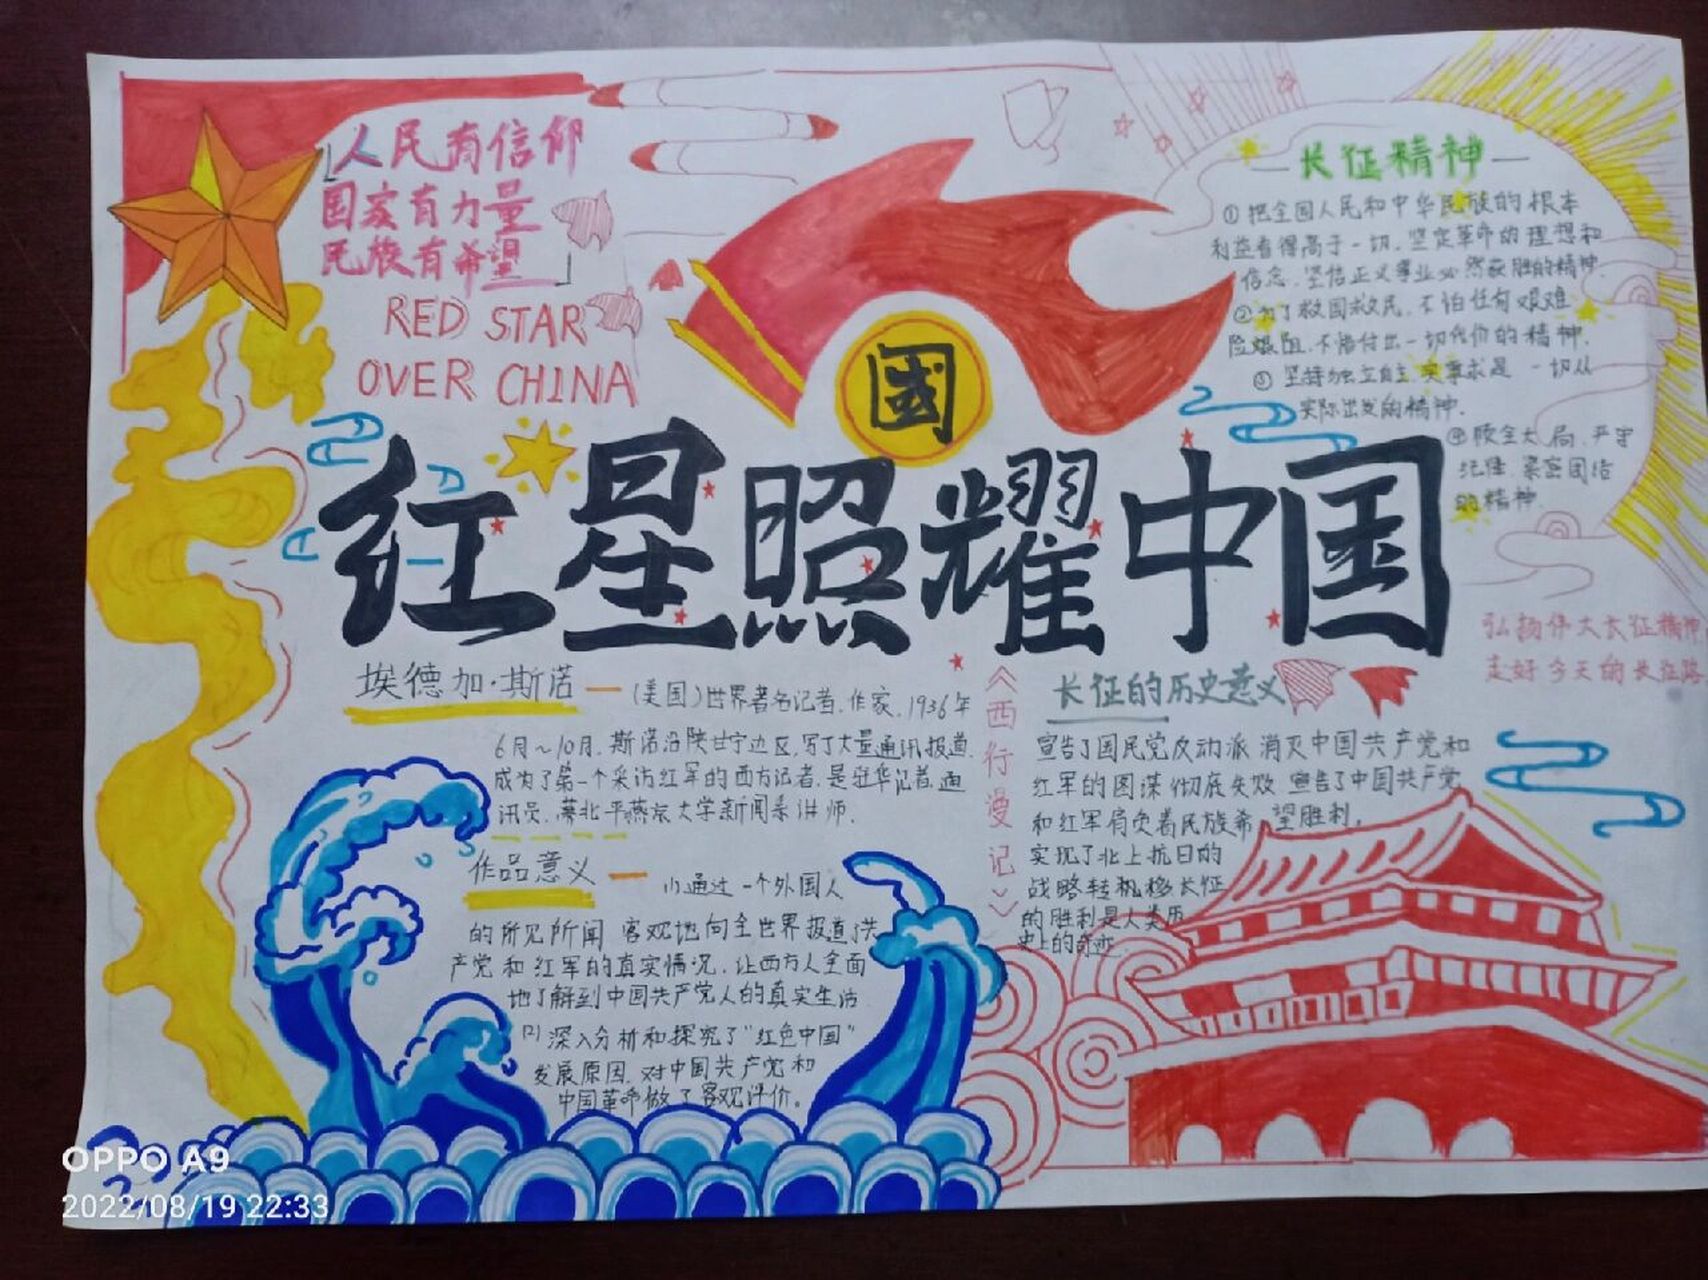 人民有信仰
国家有力量
民族有希望
RED STAR
OVER CHINA
國
红星照耀中国
长征精神
①把全国人民和中华民族的根本
利益看得高于一切,坚定革命的理想和
信念,坚信正义事业必然获胜的精神.
②为了救国救民,不怕任何艰难
险阻,不惜付出一切代价的精神.
③坚持独立自主,实事求是 一切从
实际出发的精神.
④顾全大局,严守
纪律,紧密团结
的精神.
弘扬伟大长征精神
走好今天的长征路
埃德加·斯诺 — (美国)世界著名记者,作家,1936年
6月~10月,斯诺沿陕甘宁边区,写了大量通讯报道.
成为了第一个采访红军的西方记者,是驻华记者,通
讯员,兼北平燕京大学新闻系讲师.
作品意义 — (1)通过一个外国人
的所见所闻 客观地向全世界报道了共
产党和红军的真实情况,让西方人全面
地了解到中国共产党人的真实生活
(2)深入分析和探究了“红色中国”
发展原因,对中国共产党和
中国革命做了客观评价。
《西行漫记》
长征的历史意义
宣告了国民党反动派消灭中国共产党和
红军的图谋彻底失败 宣告了中国共产党
和红军肩负着民族希望胜利,
实现了北上抗日的
战略转机移长征
的胜利是人类历
史上的奇迹.
OPPO A9
2022/08/19 22:33